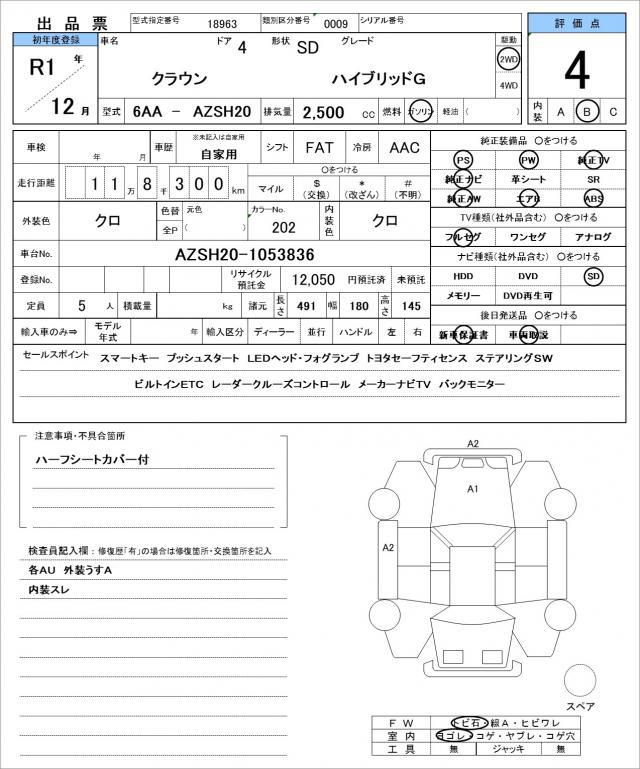 出品票 型式指定番号 18963 類別区分番号 0009 シリアル番号
評価点
初年度登録 車名 ドア 4 形状 SD グレード 駆動
R1 年 クラウン ハイブリッドG 2WD
4WD
4
12 月 型式 6AA － AZSH20 排気量 2,500 cc 燃料 ガソリン 軽油 ( )
内装 A B C
車検 年 月 車歴 ※未記入は自家用 自家用 シフト FAT 冷房 AAC
純正装備品 〇をつける
PS PW 純正TV
走行距離 1 1 万 8 千 3 0 0 km 〇をつける
マイル $ (交換) * (改ざん) # (不明)
純正ナビ 革シート SR
純正AW エアB ABS
外装色 クロ 色替 全P 元色 ( ) カラーNo. 202 内装色 クロ
TV種類(社外品含む) 〇をつける
フルセグ ワンセグ アナログ
車台No. AZSH20-1053836
ナビ種類(社外品含む) 〇をつける
登録No. リサイクル預託金 12,050 円預託済 未預託
HDD DVD SD
メモリー DVD再生可
定員 5 人 積載量 kg 諸元 長さ 491 幅 180 高さ 145
後日発送品 〇をつける
輸入車のみ⇒ モデル年式 年 輸入区分 ディーラー 並行 ハンドル 左 右
新車保証書 車両取説
セールスポイント スマートキー プッシュスタート LEDヘッド・フォグランプ トヨタセーフティセンス ステアリングSW
ビルトインETC レーダークルーズコントロール メーカーナビTV バックモニター
注意事項・不具合箇所
ハーフシートカバー付
検査員記入欄：修復歴「有」の場合は修復箇所・交換箇所を記入
各AU 外装うすA
内装スレ
A2
A1
A2
スペア
FW トビ石・線A・ヒビワレ
室内 ヨゴレ・コゲ・ヤブレ・コゲ穴
工具 無 ジャッキ 無